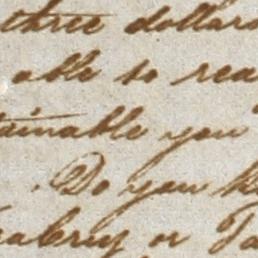 three dollars
able to rea
tainable you
. Do you h
or Ta